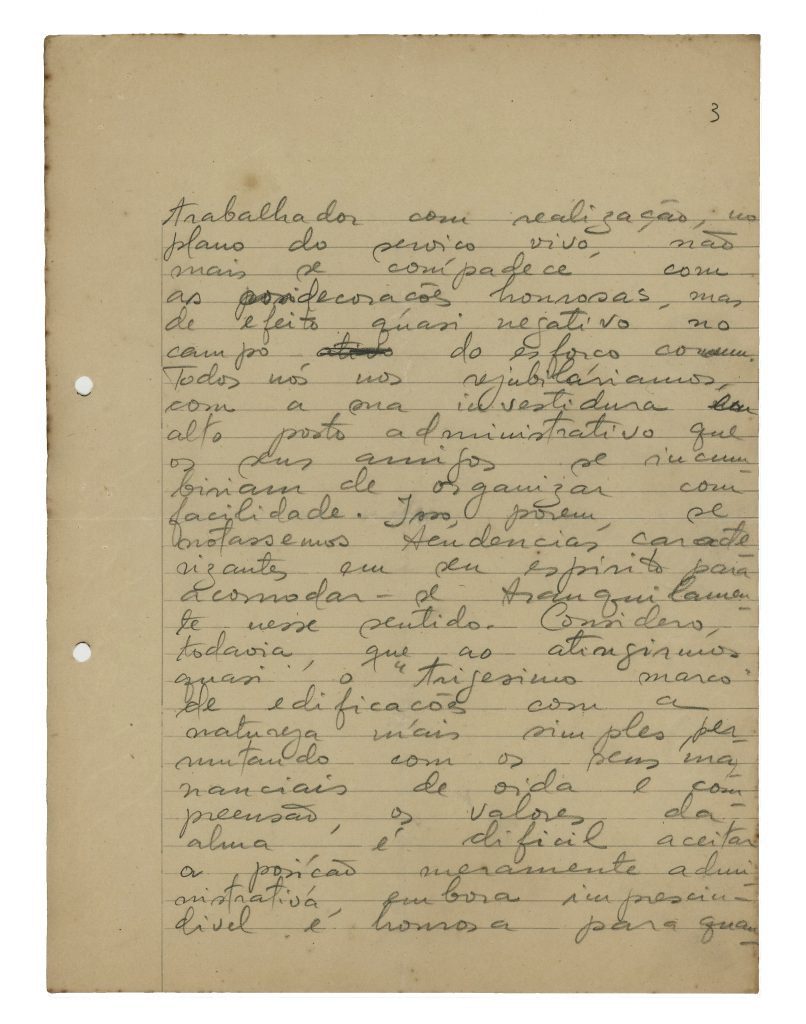 3
trabalhador com realização, no
plano do serviço vivo, não
mais se compadece com
as decorações honrosas, mas
de efeito quasi negativo no
campo do esforço comum.
Todos nós nos rejubiláriamos,
com a sua investidura em
alto posto administrativo que
os seus amigos se incum-
biriam de organizar com
facilidade. Isso, porem, se
notassemos tendencias caracte
rizantes em seu espírito para
acomodar-se tranquilamen-
te nesse sentido. Considero,
todavia, que ao atingirmos
quasi o "trigesimo marco"
de edificações com a
natureza mais simples per-
mutando com os seus ma-
nanciais de vida e com-
preensão, os valores da
alma é dificil aceitar
a posição meramente admi-
nistrativa, embora imprescin-
divel e honrosa para quan-